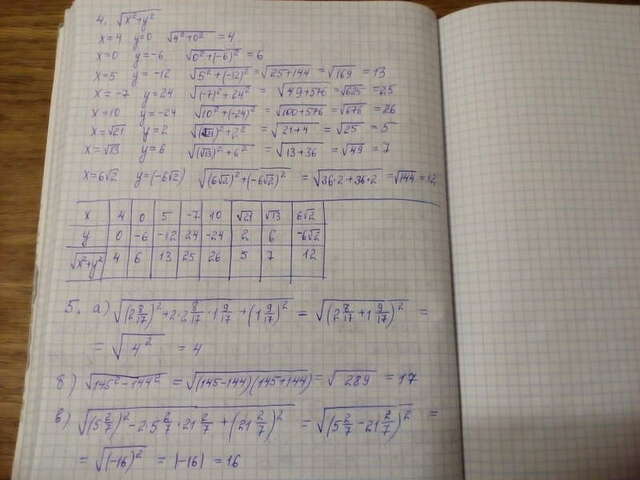 4. √x²+y²
x=4 y=0 √4²+0² =4
x=0 y=-6 √0²+(-6)² =6
x=5 y=-12 √5²+(-12)² =√25+144 =√169 =13
x=-7 y=24 √(-7)²+24² =√49+576 =√625 =25
x=10 y=-24 √10²+(-24)² =√100+576 =√676 =26
x=√21 y=2 √(√21)²+2² =√21+4 =√25 =5
x=√13 y=6 √(√13)²+6² =√13+36 =√49 =7
x=6√2 y=(-6√2) √(6√2)²+(-6√2)² =√36·2+36·2 =√144 =12
x 4 0 5 -7 10 √21 √13 6√2
y 0 -6 -12 24 -24 2 6 -6√2
√x²+y² 4 6 13 25 26 5 7 12
5. а) √(2 8/17)²+2·2 8/17·1 9/17+(1 9/17)² = √(2 8/17+1 9/17)² =
= √4² = 4
б) √145²-144² = √(145-144)(145+144) = √289 = 17
в) √(5 2/7)²-2·5 2/7·21 2/7+(21 2/7)² = √(5 2/7-21 2/7)² =
= √(-16)² = |-16| = 16